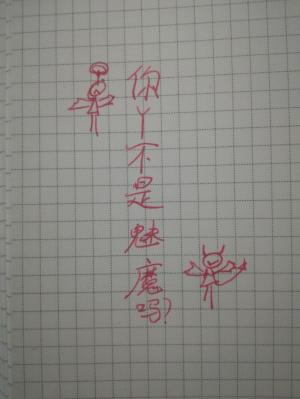 你丫不是魅魔吗?